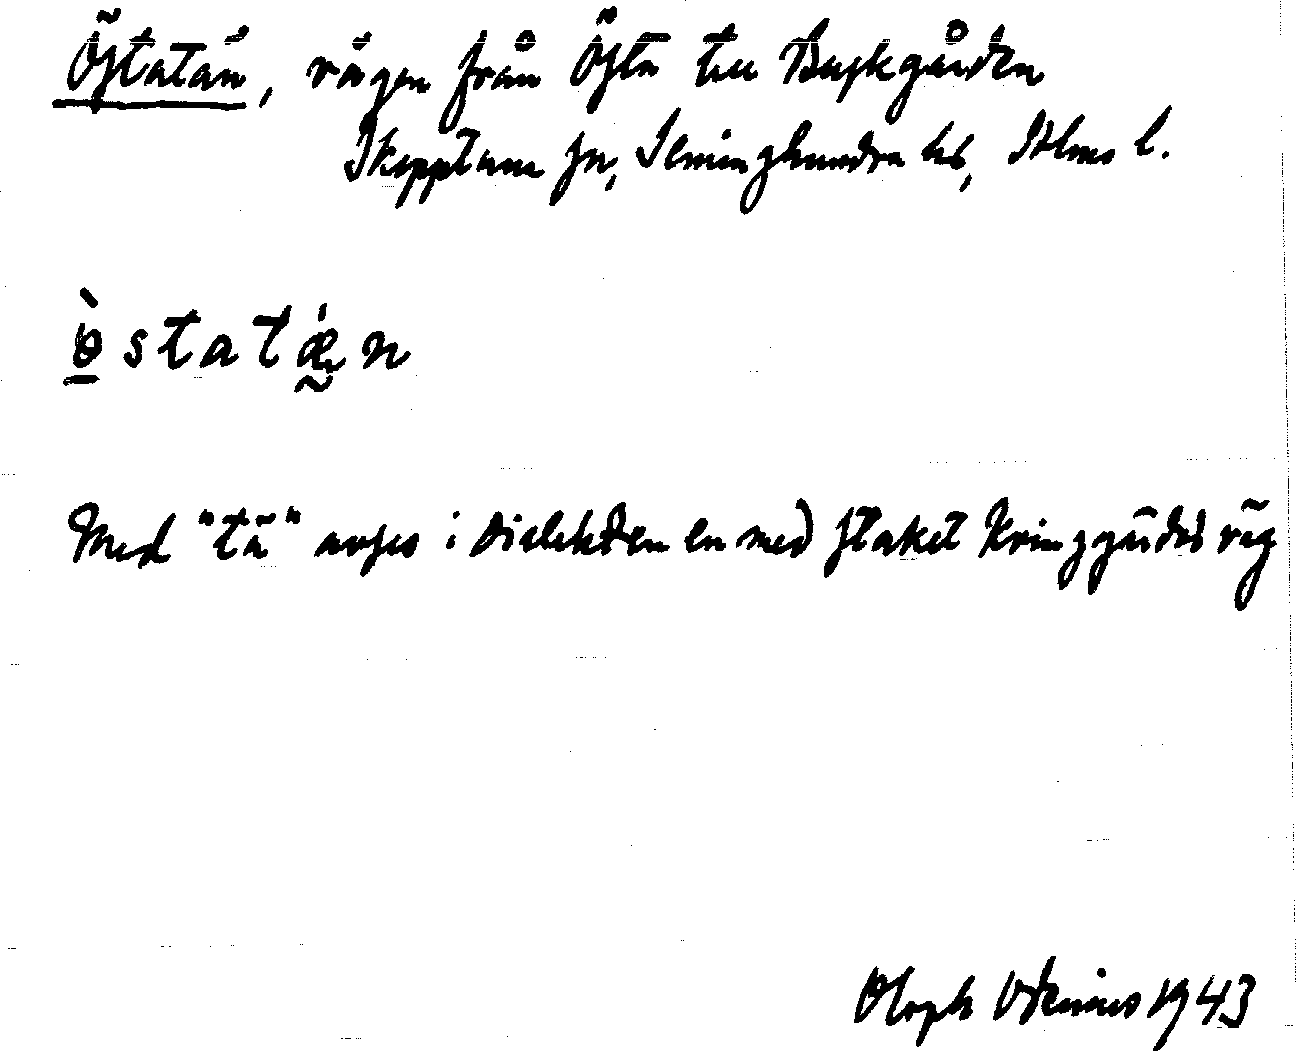 Östatän, vägen från Östa till Buskgården
Skepptuna sn, Seminghundra hd, Sthms l.
ö̀statǽn
Med "tä" avses i dialekten en med staket kringgärdad väg
Oloph Odenius 1943